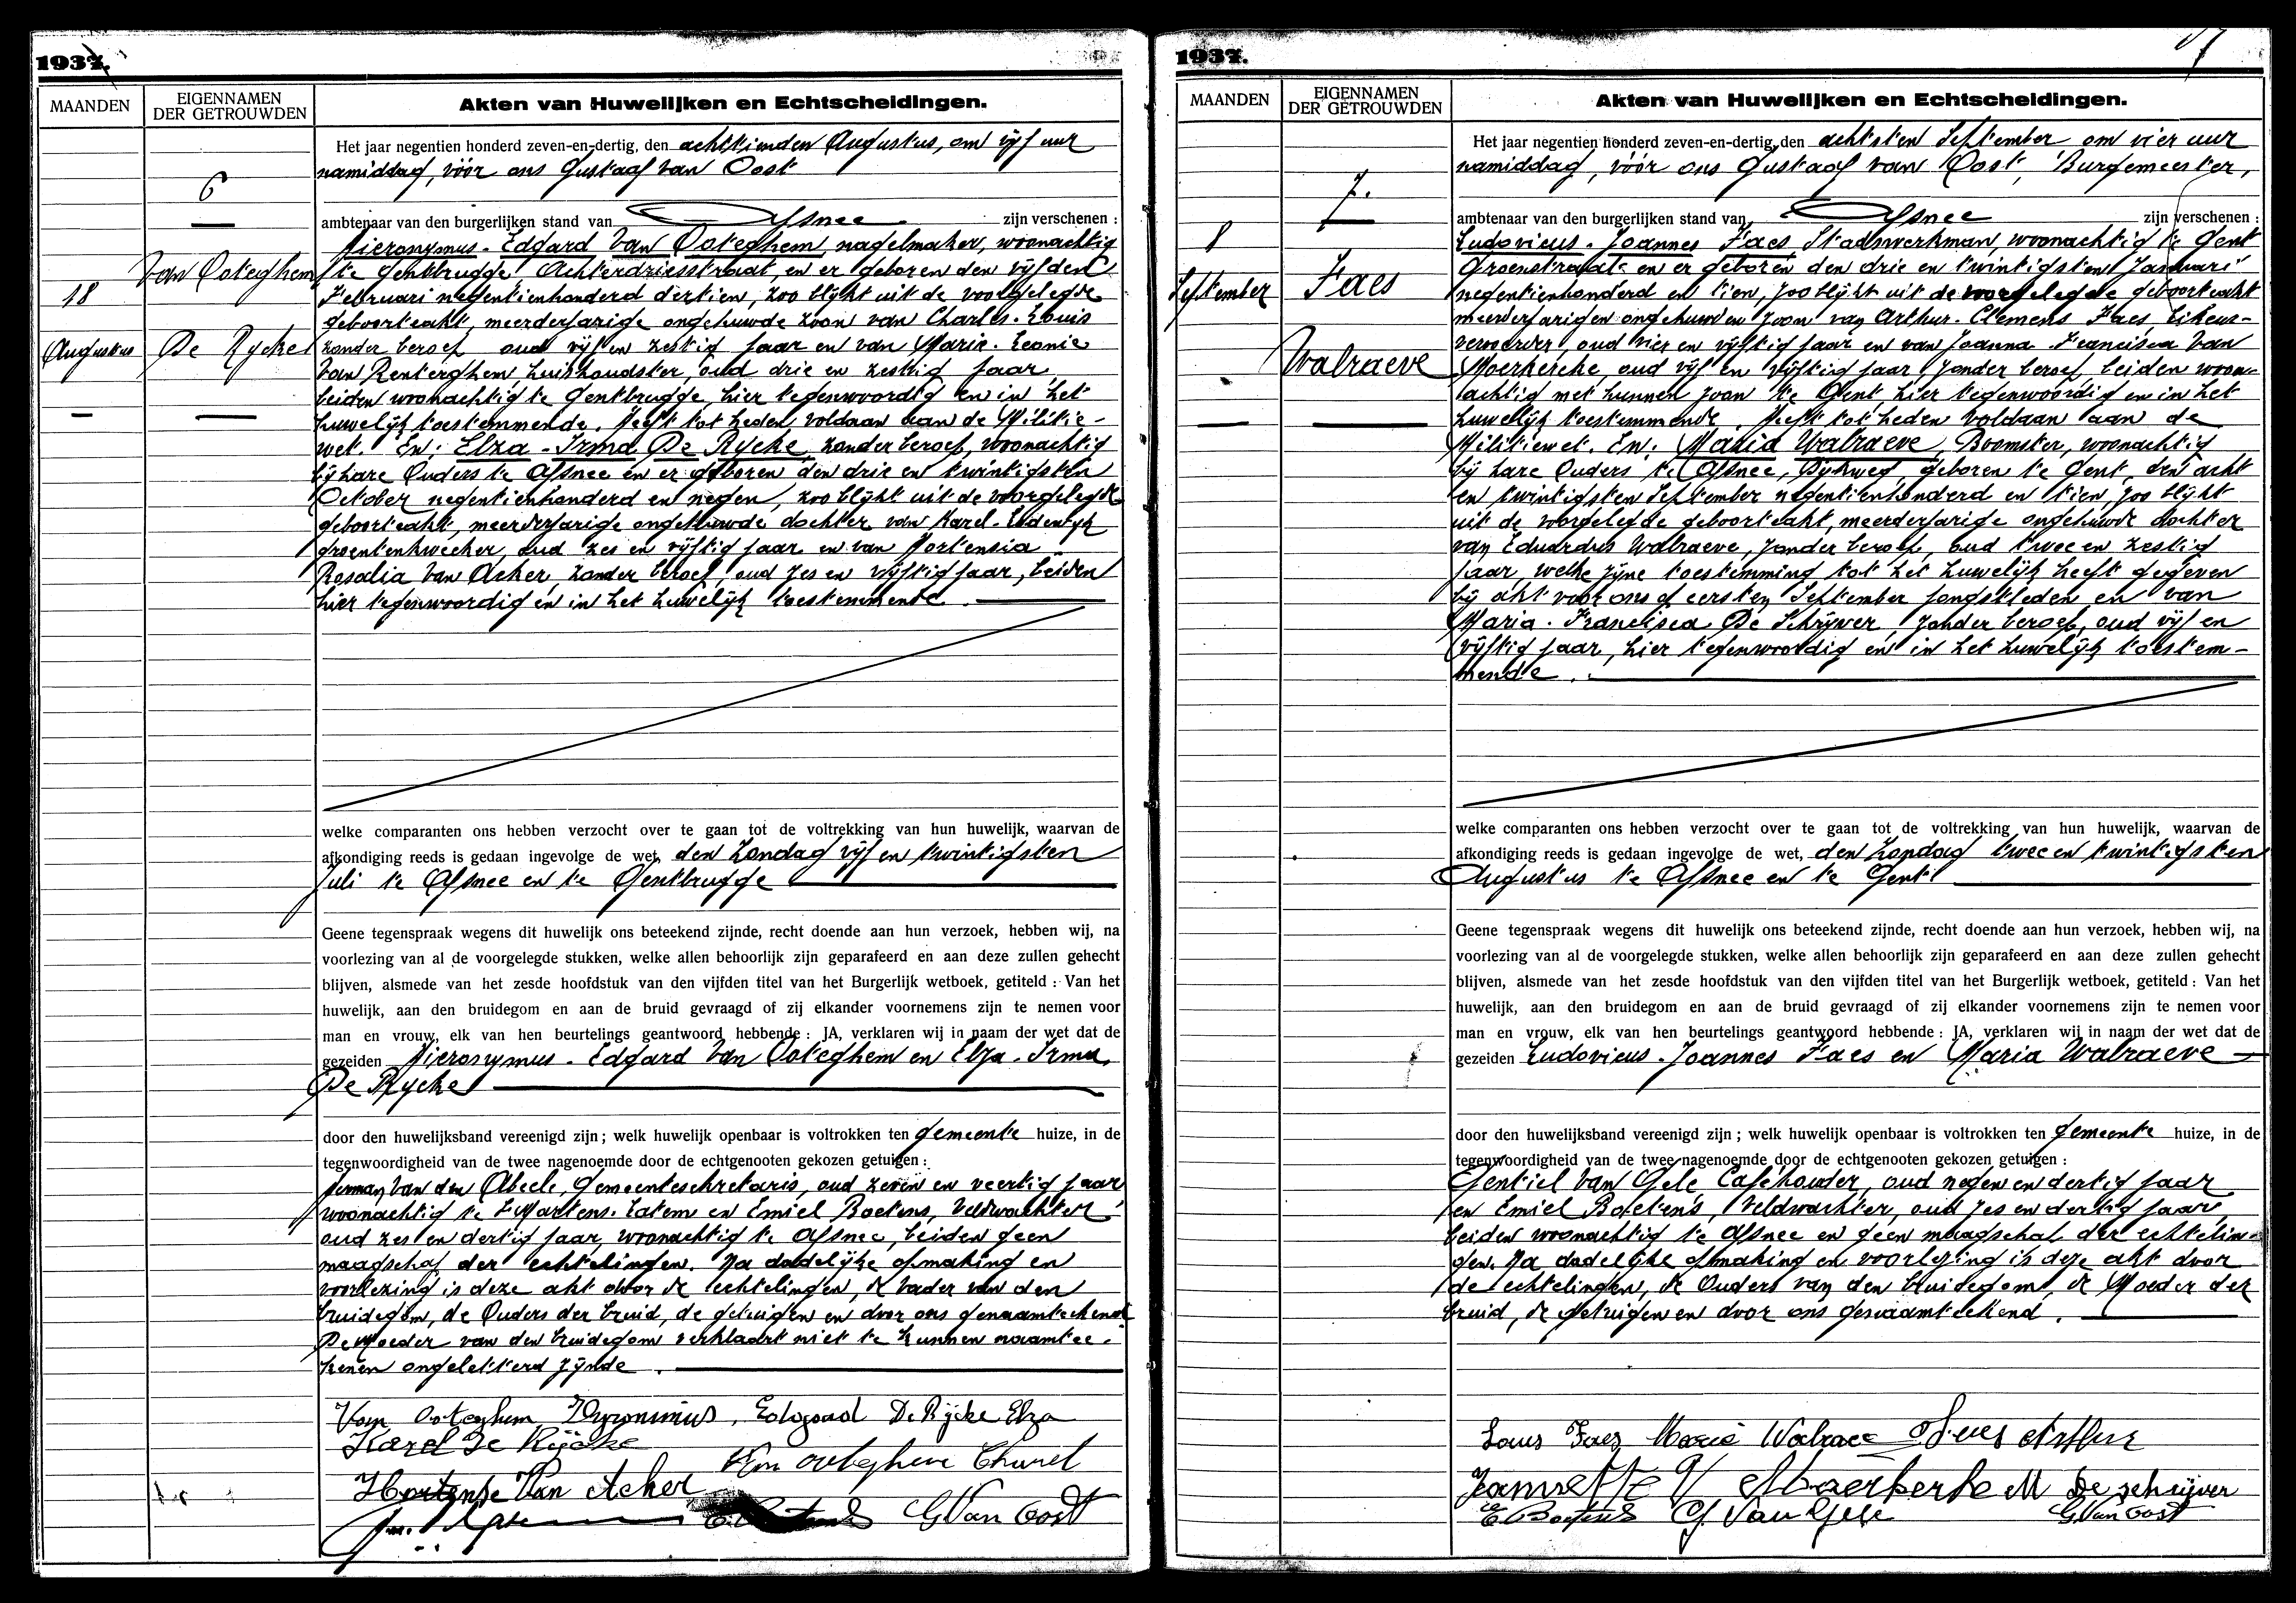 1937.
MAANDEN
EIGENNAMEN
DER GETROUWDEN
Akten van Huwelijken en Echtscheidingen.
6
Van Ooteghem
18
Augustus
De Rycke
Het jaar negentien honderd zeven-en-dertig, den achttienden Augustus, om vijf uur
namiddag, vóór ons Gustaaf van Oost
ambtenaar van den burgerlijken stand van Afsnee zijn verschenen :
Hieronymus-Edgard Van Ooteghem, nagelmaker, woonachtig
te Gentbrugge Achterdriesstraat, en er geboren den vijfden
Februari negentienhonderd dertien, zoo blijkt uit de voorgelegde
geboorteakt, meerderjarige ongehuwde zoon van Charles-Louis
zonder beroep oud vijf en zestig jaar en van Marie-Leonie
Van Renterghem, huishoudster, oud drie en zestig jaar
beiden woonachtig te Gentbrugge, hier tegenwoordig en in het
huwelijk toestemmende. Heeft tot heden voldaan aan de Militie-
wet. En; Elza-Irma De Rycke, zonder beroep, woonachtig
bij hare Ouders te Afsnee en er geboren den drie en twintigsten
October negentienhonderd en negen, zoo blijkt uit de voorgelegde
geboorteakt, meerderjarige ongehuwde dochter van Karel-Lodewijk
groentenkweeker, oud zes en vijftig jaar en van Hortensia
Rosalia Van Acker, zonder beroep, oud zes en vijftig jaar, beiden
hier tegenwoordig en in het huwelijk toestemmende.
welke comparanten ons hebben verzocht over te gaan tot de voltrekking van hun huwelijk, waarvan de
afkondiging reeds is gedaan ingevolge de wet, den Zondag vijf en twintigsten
Juli te Afsnee en te Gentbrugge
Geene tegenspraak wegens dit huwelijk ons beteekend zijnde, recht doende aan hun verzoek, hebben wij, na
voorlezing van al de voorgelegde stukken, welke allen behoorlijk zijn geparafeerd en aan deze zullen gehecht
blijven, alsmede van het zesde hoofdstuk van den vijfden titel van het Burgerlijk wetboek, getiteld : Van het
huwelijk, aan den bruidegom en aan de bruid gevraagd of zij elkander voornemens zijn te nemen voor
man en vrouw, elk van hen beurtelings geantwoord hebbende : JA, verklaren wij in naam der wet dat de
gezeiden Hieronymus-Edgard Van Ooteghem en Elza-Irma
De Rycke
door den huwelijksband vereenigd zijn ; welk huwelijk openbaar is voltrokken ten gemeente huize, in de
tegenwoordigheid van de twee nagenoemde door de echtgenooten gekozen getuigen :
Herman Van den Abeele, Gemeentesekretaris, oud zeven en veertig jaar
woonachtig te St Martens-Latem en Emiel Boetens, Veldwachter
oud zes en dertig jaar, woonachtig te Afsnee, beiden geen
maagschap der echtelingen. Na dadelijke opmaking en
voorlezing is deze akt door de echtelingen, de vader van den
bruidegom, de Ouders der bruid, de getuigen en door ons genaamteekend
De Moeder van den bruidegom verklaart niet te kunnen naamtee-
kenen ongeletterd zijnde.
Van Ooteghem Hyronimus, Edgaad De Rijcke Elza
Karel De Rijcke
Van Ooteghem Charel
Hortense Van Acker
G Van Oost
1937.
MAANDEN
EIGENNAMEN
DER GETROUWDEN
Akten van Huwelijken en Echtscheidingen.
7.
8
September
Faes
Walraeve
Het jaar negentien honderd zeven-en-dertig, den achtsten September om vier uur
namiddag, vóór ons Gustaaf van Oost, Burgemeester,
ambtenaar van den burgerlijken stand van Afsnee zijn verschenen :
Ludovicus-Joannes Faes Stadswerkman, woonachtig te Gent
Groenstraat en er geboren den drie en twintigsten Januari
negentienhonderd en tien, zoo blijkt uit de voorgelegde geboorteakt
meerderjarigen ongehuwden zoon van Arthur-Clemens Faes,
vervoerder, oud vier en vijftig jaar en van Joanna-Francisca Van
Moerkerke, oud vijf en vijftig jaar zonder beroep, beiden woon-
achtig met hunnen zoon te Gent, hier tegenwoordig en in het
huwelijk toestemmende. Heeft tot heden voldaan aan de
Militiewet. En: Maria Walraeve, Boomster, woonachtig
bij hare Ouders te Afsnee, Dijkweg, geboren te Gent, den acht
en twintigsten September negentienhonderd en tien, zoo blijkt
uit de voorgelegde geboorteakt, meerderjarige ongehuwde dochter
van Eduardus Walraeve, zonder beroep, oud twee en zestig
jaar, welke zijne toestemming tot het huwelijk heeft gegeven
bij akt voor ons op eersten September jongstleden en van
Maria-Francisca De Schrijver, zonder beroep, oud vijf en
vijftig jaar, hier tegenwoordig en in het huwelijk toestem-
mende.
welke comparanten ons hebben verzocht over te gaan tot de voltrekking van hun huwelijk, waarvan de
afkondiging reeds is gedaan ingevolge de wet, den Zondag twee en twintigsten
Augustus te Afsnee en te Gent
Geene tegenspraak wegens dit huwelijk ons beteekend zijnde, recht doende aan hun verzoek, hebben wij, na
voorlezing van al de voorgelegde stukken, welke allen behoorlijk zijn geparafeerd en aan deze zullen gehecht
blijven, alsmede van het zesde hoofdstuk van den vijfden titel van het Burgerlijk wetboek, getiteld : Van het
huwelijk, aan den bruidegom en aan de bruid gevraagd of zij elkander voornemens zijn te nemen voor
man en vrouw, elk van hen beurtelings geantwoord hebbende : JA, verklaren wij in naam der wet dat de
gezeiden Ludovicus-Joannes Faes en Maria Walraeve
door den huwelijksband vereenigd zijn ; welk huwelijk openbaar is voltrokken ten gemeente huize, in de
tegenwoordigheid van de twee nagenoemde door de echtgenooten gekozen getuigen :
Gentiel Van Gele Caféhouder, oud negen en dertig jaar
en Emiel Boetens, Veldwachter, oud zes en dertig jaar,
beiden woonachtig te Afsnee en geen maagschap der echtelin-
gen. Na dadelijke opmaking en voorlezing is deze akt door
de echtelingen, de Ouders van den bruidegom, de Moeder der
bruid, de getuigen en door ons genaamteekend.
Louis Faes Maria Walraeve Faes Arthur
Jannette V Moerkerke M De schrijver
E Boetens G. Van Gele G Van Oost